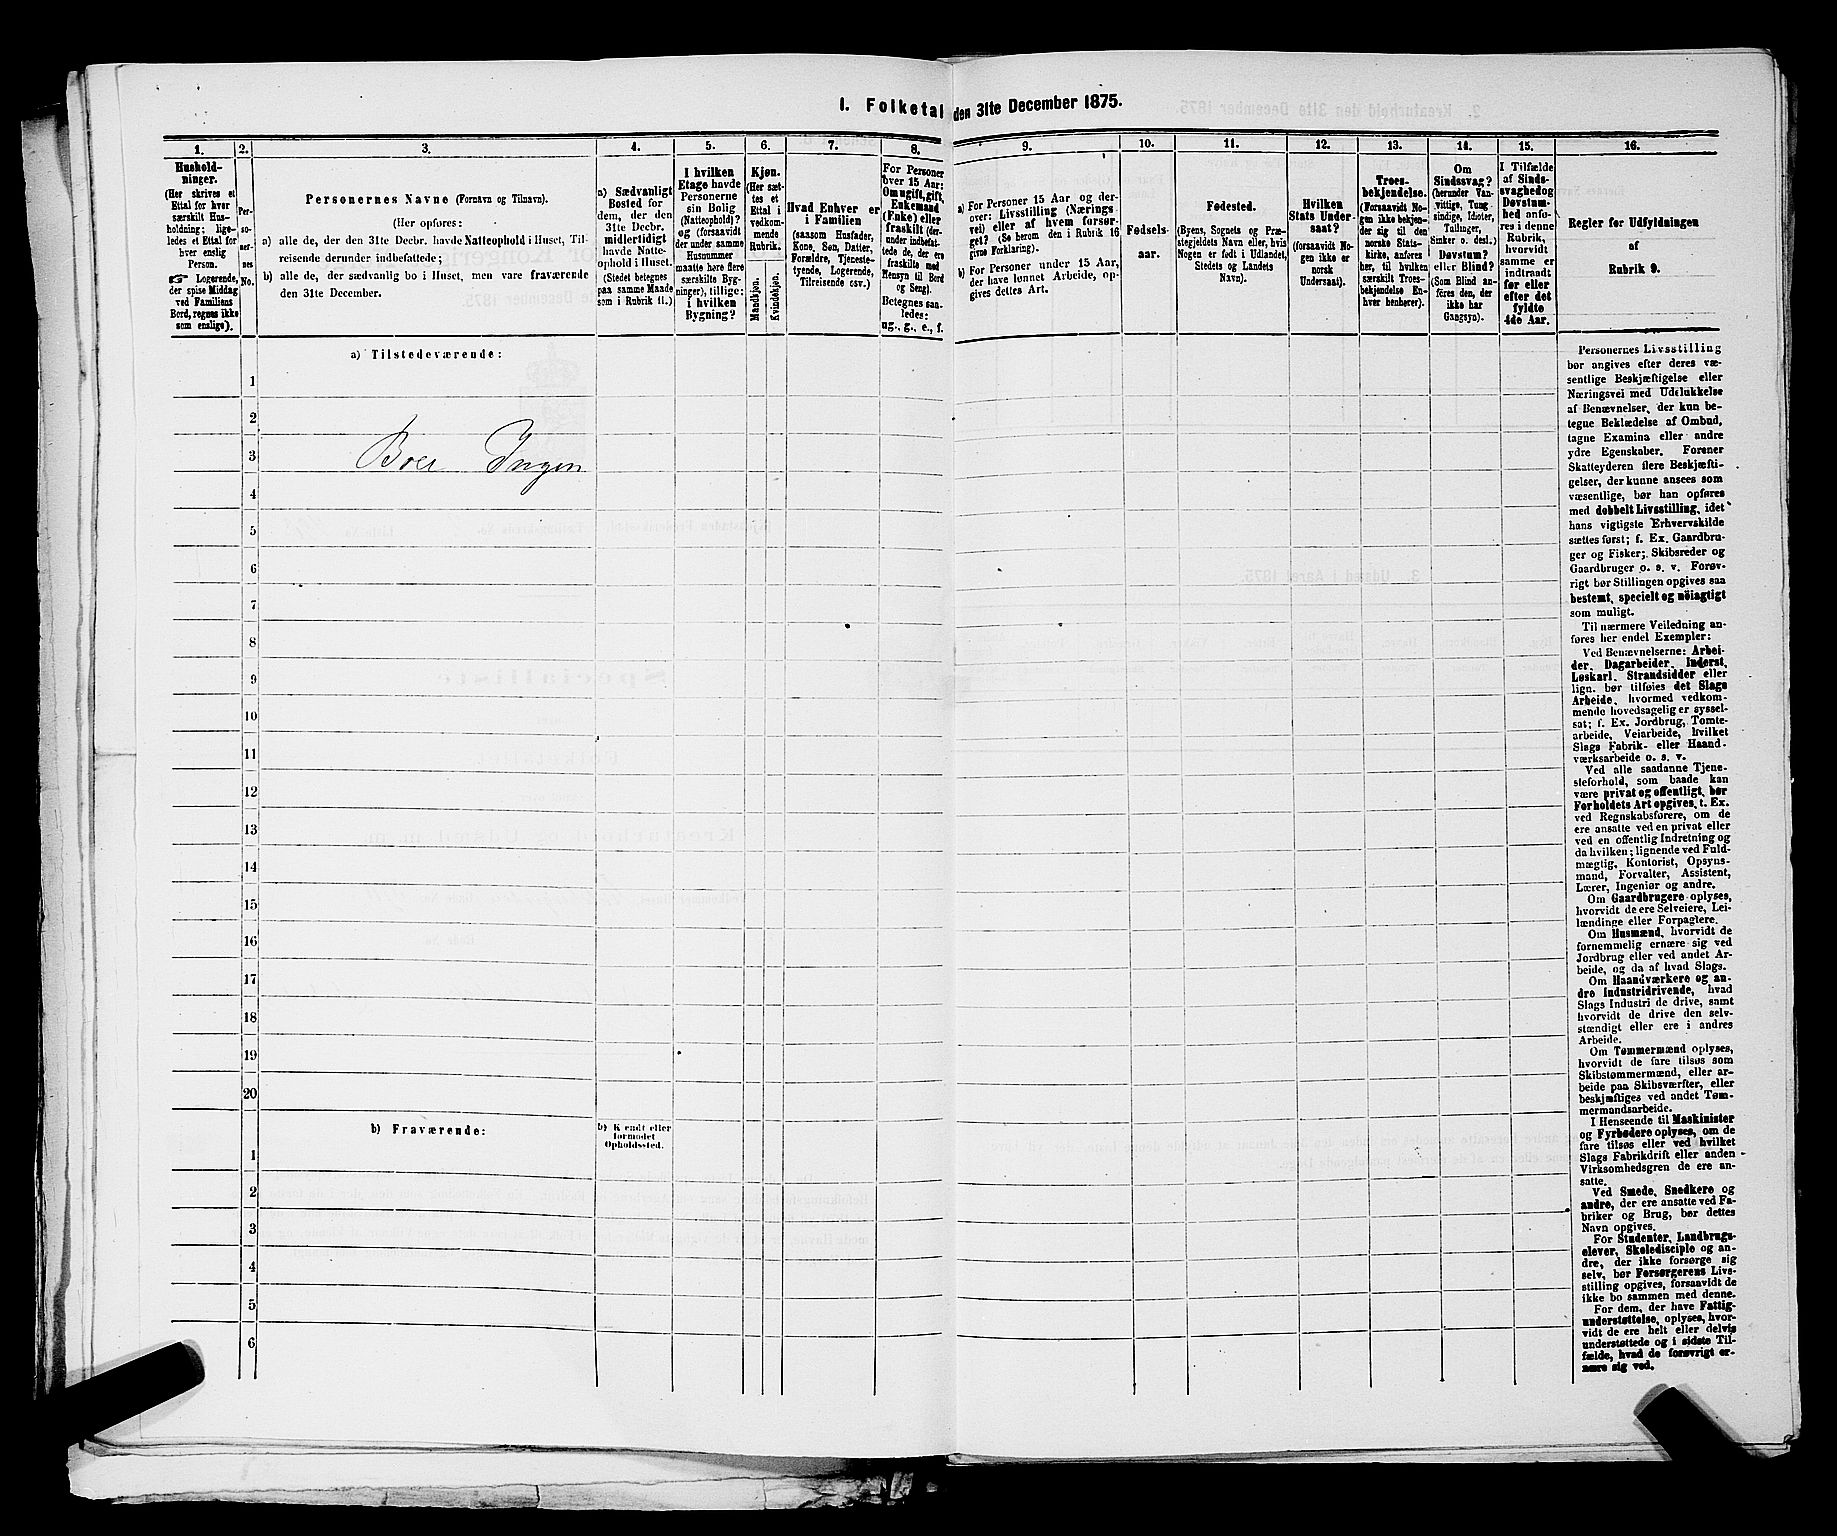 I. Folketal den 31te December 1875.
1.
Hushold-
ninger.
(Her skrives et
Ettal for hver
særskilt Hus-
holdning; lige-
ledes et Ettal for
hver enslig
Person.
☞ Logerende,
der spise Middag
ved Familiens
Bord, regnes ikke
som enslige).
2.
Per-
so-
ner-
nes
No.
3.
Personernes Navne (Fornavn og Tilnavn).
(Her opføres:
a) alle de, der den 31te Decbr. havde Natteophold i Huset, Til-
reisende derunder indbefattede;
b) alle de, der sædvanlig bo i Huset, men vare fraværende
den 31te December.
4.
a) Sædvanligt
Bosted for
dem, der den
31te Decbr.
midlertidigt
havde Natte-
ophold i Huset.
(Stedet betegnes
paa samme Maade
som i Rubrik 11.)
5.
I hvilken
Etage havde
Personerne
sin Bolig
(Natteophold)?
og (forsaavidt
der under samme
Husnummer
maatte høre flere
særskilte Byg-
ninger), tillige:
i hvilken
Bygning?
6.
Kjøn.
(Her sæt-
tes et
Ettal i
vedkom-
mende
Rubrik.
Mandkjøn.
Kvindekjøn.
7.
Hvad Enhver er
i Familien
(saasom Husfader,
Kone, Søn, Datter,
Forældre, Tjeneste-
tyende, Logerende,
Tilreisende osv.)
8.
For Personer
over 15 Aar:
Om ugift, gift,
Enkemand
(Enke) eller
fraskilt (der-
under indbefat-
tede de, der ere
fraskilte med
Hensyn til Bord
og Seng).
Betegnes saa-
ledes:
ug., g., e., f.
9.
a) For Personer 15 Aar og der-
over: Livsstilling (Nærings-
vei) eller af hvem forsør-
get? (Se herom den i Rubrik 16
givne Forklaring).
b) For Personer under 15 Aar,
der have lønnet Arbeide, op-
gives dettes Art.
10.
Fødsels-
aar.
11.
Fødested.
(Byens, Sognets og Præ-
stegjeldets Navn eller, hvis
Nogen er født i Udlandet,
Stedets og Landets
Navn).
12.
Hvilken
Stats Under-
saat?
(forsaavidt No-
gen ikke er
norsk
Undersaat).
13.
Troes-
bekjendelse.
(Forsaavidt No-
gen ikke bekjen-
der sig til den
norske Stats-
kirke, anføres
her, til hvilken
særskilt Troes-
bekjendelse En-
hver henhører).
14.
Om
Sindssvag?
(herunder Van-
vittige, Tung-
sindige, Idioter,
Tullinger,
Sinker o. desl.)
Døvstum?
eller Blind?
(Som Blind an-
føres den, der
ikke har
Gangsyn).
15.
I Tilfælde
af Sinds-
svaghed og
Døvstum-
hed anfø-
res i denne
Rubrik,
hvorvidt
samme er
indtraadt
før eller
efter det
fyldte
4de Aar.
16.
Regler for Udfyldningen
af
Rubrik 9.
a) Tilstedeværende:
1
2
3 Boer Ingen
4
5
6
7
8
9
10
11
12
13
14
15
16
17
18
19
20
b) Fraværende:
b) Kjendt eller
formodet
Opholdssted.
1
2
3
4
5
6
Personernes Livsstilling
bør angives efter deres væ-
sentlige Beskjæftigelse eller
Næringsvei med Udelukkelse
af Benævnelser, der kun be-
tegne Beklædelse af Ombud,
tagne Examina eller andre
ydre Egenskaber. Forener
Skatteyderen flere Beskjæfti-
gelser, der kunne ansees som
væsentlige, bør han opføres
med dobbelt Livsstilling, idet
hans vigtigste Erhvervskilde
sættes først; f. Ex. Gaardbru-
ger og Fisker; Skibsreder og
Gaardbruger o. s. v. Forøv-
rigt bør Stillingen opgives saa
bestemt, specielt og nöiagtigt
som muligt.
Til nærmere Veiledning an-
føres her endel Exempler:
Ved Benævnelserne: Arbei-
der, Dagarbeider, Inderst,
Løskarl, Strandsidder eller
lign. bør tilføies det Slags
Arbeide, hvormed vedkom-
mende hovedsagelig er syssel-
sat; f. Ex. Jordbrug, Tomte-
arbeide, Veiarbeide, hvilket
Slags Fabrik- eller Haand-
værksarbeide o. s. v.
Ved alle saadanne Tjene-
steforhold, som baade kan
være privat og offentligt, bør
Forholdets Art opgives, t. Ex.
ved Regnskabsførere, om de
ere ansatte ved en privat eller
ved en offentlig Indretning og
da hvilken; lignende ved Fuld-
mægtig, Kontorist, Opsyns-
mand, Forvalter, Assistent,
Lærer, Ingeniør og andre.
Om Gaardbrugere oplyses,
hvorvidt de ere Selveiere, Lei-
lændinge eller Forpagtere.
Om Husmænd, hvorvidt de
fornemmelig ernære sig ved
Jordbrug eller ved andet Ar-
beide, og da af hvad Slags.
Om Haandværkere og an-
dre Industridrivende, hvad
Slags Industri de drive, samt
hvorvidt de drive den selv-
stændigt eller ere i andres
Arbeide.
Om Tømmermænd oplyses,
hvorvidt de fare tilsøs som
Skibstømmermænd, eller ar-
beide paa Skibsværfter, eller
beskjæftiges ved andet Tøm-
mermandsarbeide.
I Henseende til Maskinister
og Fyrbødere oplyses, om de
fare tilsøs eller ved hvilket
Slags Fabrikdrift eller anden
Virksomhedsgren de ere an-
satte.
Ved Smede, Snedkere og
andre, der ere ansatte ved Fa-
briker og Brug, bør dettes
Navn opgives.
For Studenter, Landbrugs-
elever, Skoledisciple og an-
dre, der ikke forsørge sig
selv, bør Forsørgerens Livs-
stilling opgives, forsaavidt de
ikke bo sammen med denne.
For dem, der have Fattig-
understøttelse, oplyses, hvor-
vidt de ere helt eller delvis
understøttede og i sidste Til-
fælde, hvad de forøvrigt er-
nære sig ved.